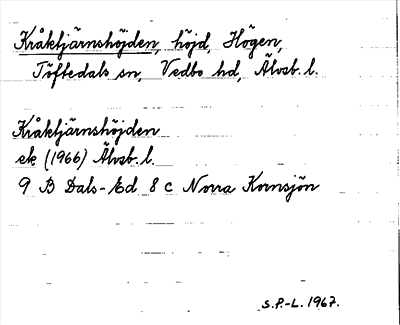 Kråktjärnshöjden, höjd, Högen,
Töftedals sn, Vedbo hd, Älvsb. l.
Kråktjärnshöjden
ek (1966) Älvsb. l.
9 B Dals-Ed 8 c Norra Kornsjön
S.P.-L. 1967.